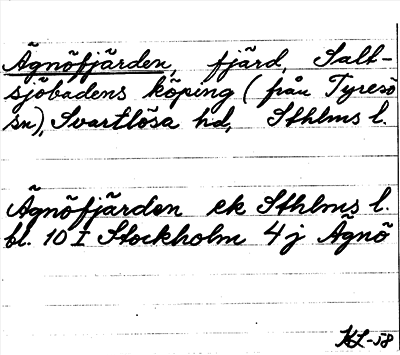 Ägnöfjärden, fjärd, Salt-
sjöbadens köping (från Tyresö
sn), Svartlösa hd, Sthlms l.
Ägnöfjärden ek Sthlms l.
bl. 10 I Stockholm 4 j Ägnö
KL-58